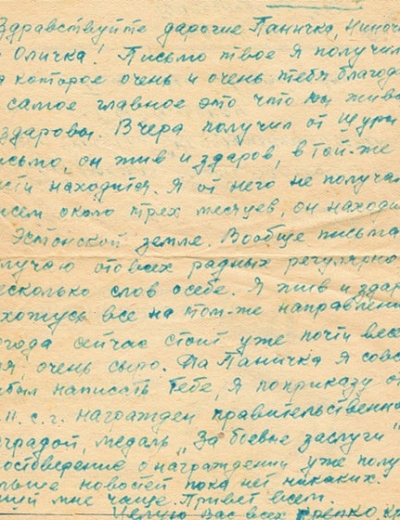 Здравствуйте дарогие Паничка, Ниноч
Оличка! Письмо твое я получил
а которое очень и очень тебя благода
самое главное это что вы живы
здаровы. Вчера получил от Шуры
исьмо, он жив и здаров, в той-же
сти находится. Я от него не получал
исем около трех месяцев, он находи
Эстонской земле. Вообще письма
олучаю ото всех радных регулярно
есколько слов осебе. Я жив и здар
ахожусь все на том-же направлении
огода сейчас стоит уже почти весе
я, очень сыро. Да Паничка я совс
абыл написать тебе, я поприказу от
II. с. г. награжден правительственной
аградой, медаль „За боевые заслуги"
остоверение о награждении уже полу
ольше новостей пока нет никаких.
иши мне чаще. Привет всем.
Целую Вас всех крепко кр